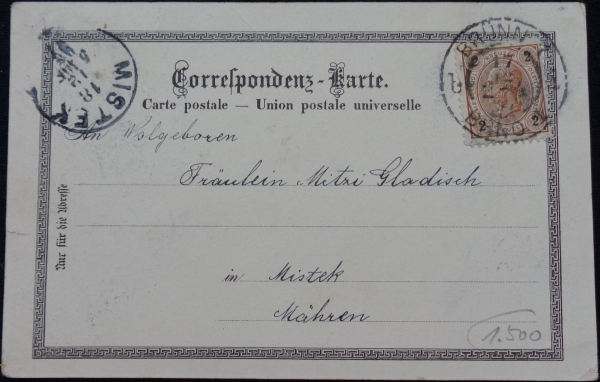 Correspondenz-Karte.
Carte postale — Union postale universelle
An Wolgeboren
Fräulein Mitzi Gladisch
in Mistek
Mähren
Nur für die Adresse
MISTEK
18
BRÜNN
17
2
2 2
1.500